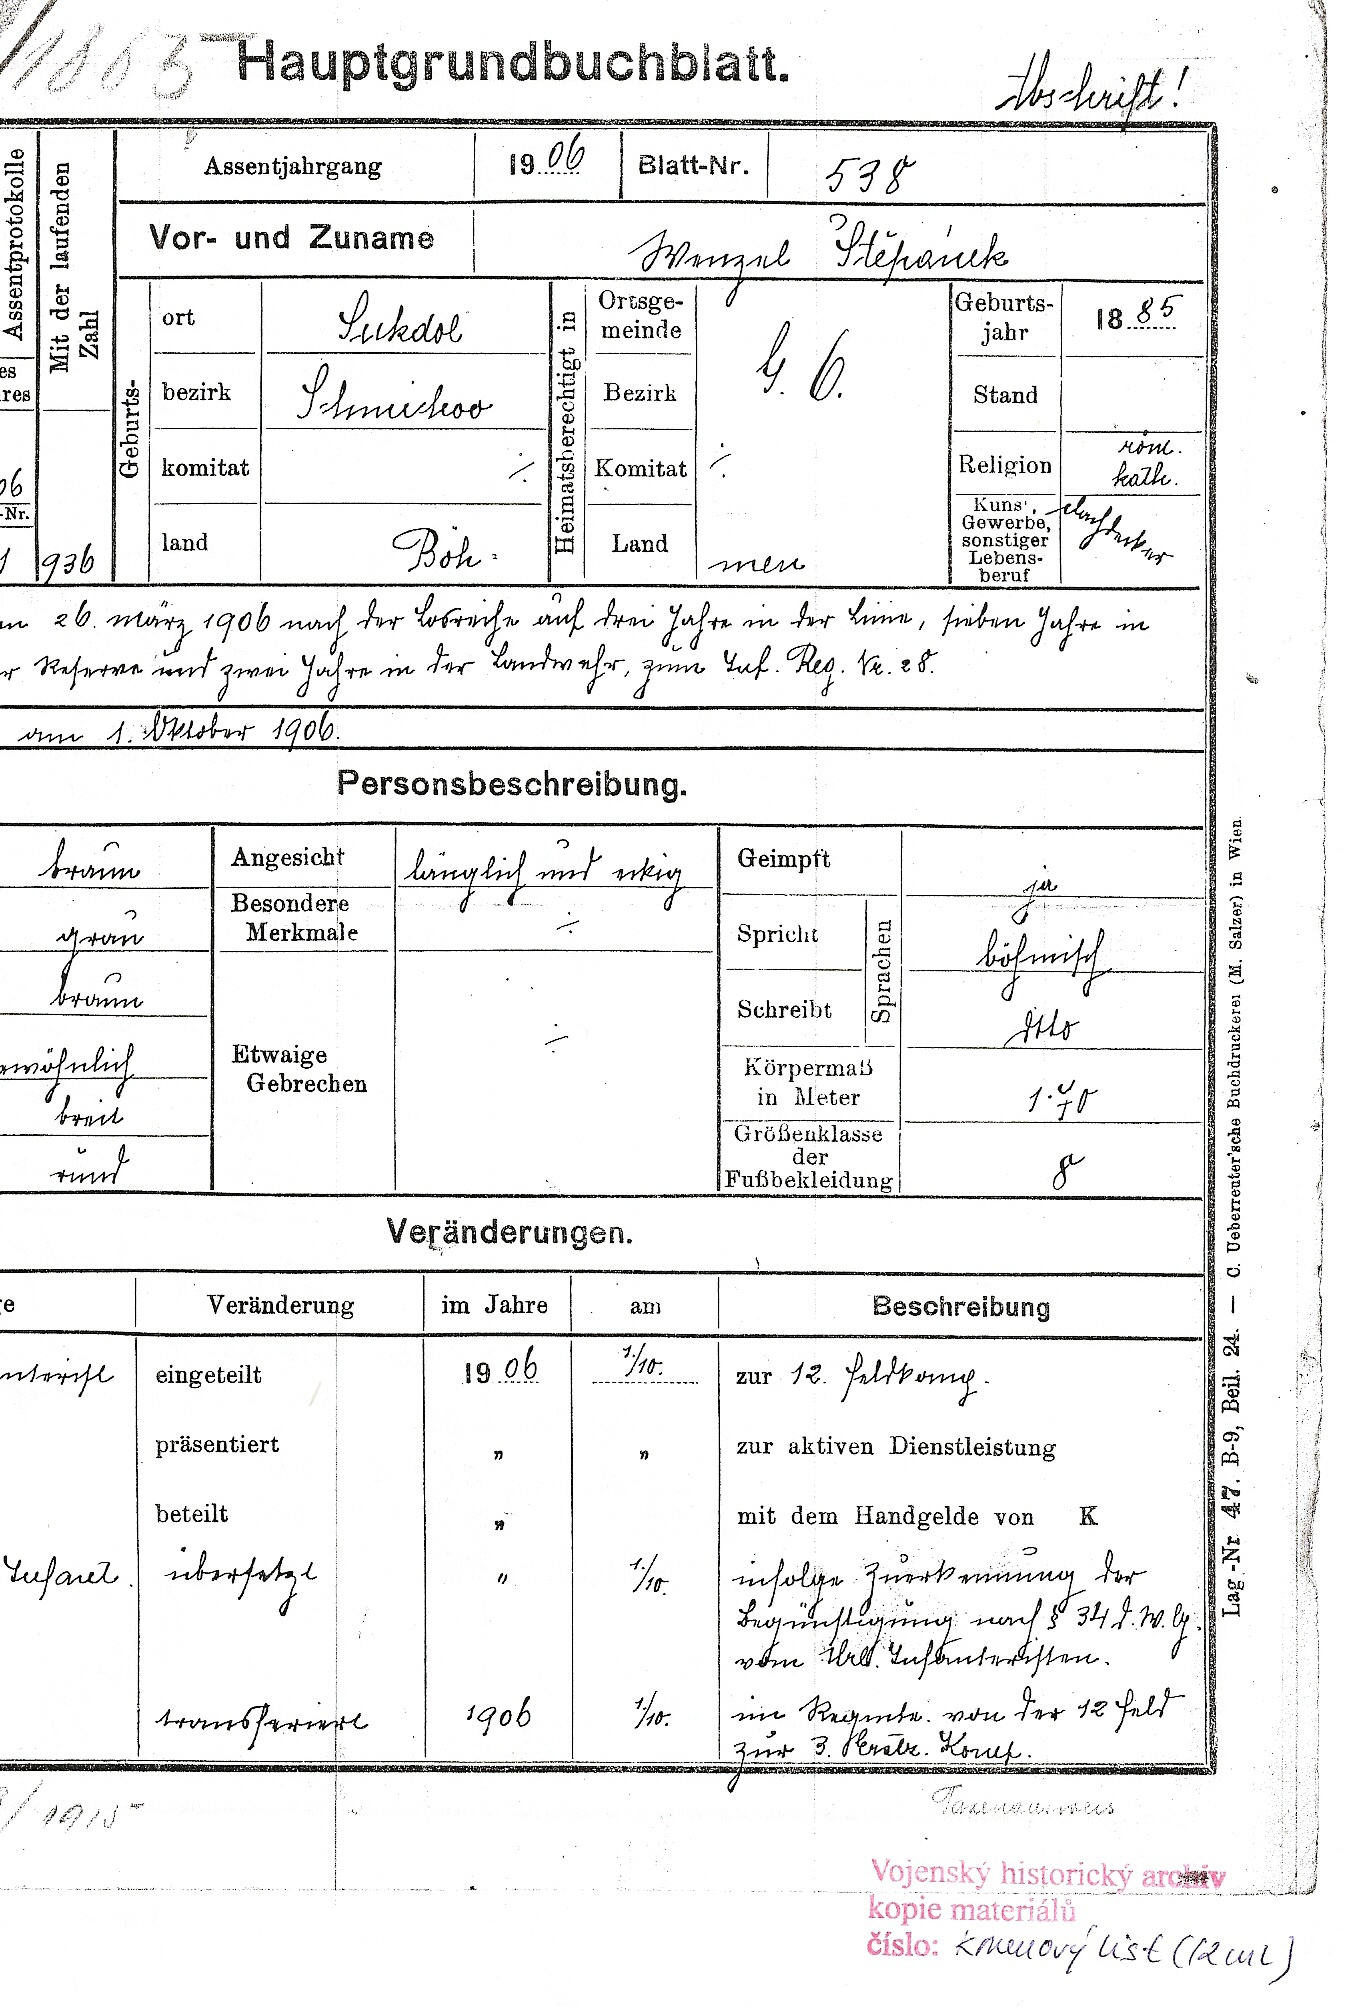 1885
Hauptgrundbuchblatt.
Abschrift!
Assentprotokolle
Mit der laufenden
Zahl
Assentjahrgang 1906 Blatt-Nr. 538
Vor- und Zuname Wenzel Štěpánek
Geburts-
ort Sukdol
bezirk Schmichov
komitat ·/.
land Böh-
Heimatsberechtigt in
Ortsge-
meinde
Bezirk
G. G.
Komitat ·/.
Land men
Geburts-
jahr 1885
Stand
Religion röm.
kath.
Kunst,
Gewerbe,
sonstiger
Lebens-
beruf
Dachdecker
es
res
06
-Nr.
1 936
26. März 1906 nach der Losreihe auf drei Jahre in der Linie, sieben Jahre in
r Reserve und zwei Jahre in der Landwehr, zum Inf. Reg. Nr. 28.
am 1. Oktober 1906.
Personsbeschreibung.
braun
grau
braun
ewöhnlich
breit
rund
Angesicht länglich und eckig
Besondere
Merkmale ·/.
Etwaige
Gebrechen ·/.
Geimpft ja
Sprachen
Spricht böhmisch
Schreibt dtto
Körpermaß
in Meter 1·70
Größenklasse
der
Fußbekleidung 8
Veränderungen.
ge Veränderung im Jahre am Beschreibung
nterist eingeteilt 1906 1./10. zur 12. Feldkomp.
präsentiert „ „ zur aktiven Dienstleistung
beteilt „ mit dem Handgelde von K
Infanet. übersetzt „ 1./10. infolge Zuerkennung der
Begünstigung nach § 34 d. W. G.
vom Infanteristen.
transferiert 1906 1./10. im Regmte. von der 12 Feld
zur 3. Ersatz. Komp.
Lag.-Nr 47. B-9, Beil. 24. — C. Ueberreuter'sche Buchdruckerei (M. Salzer) in Wien
/1915
Taxenausweis
Vojenský historický archiv
kopie materiálů
číslo: kmenový list (